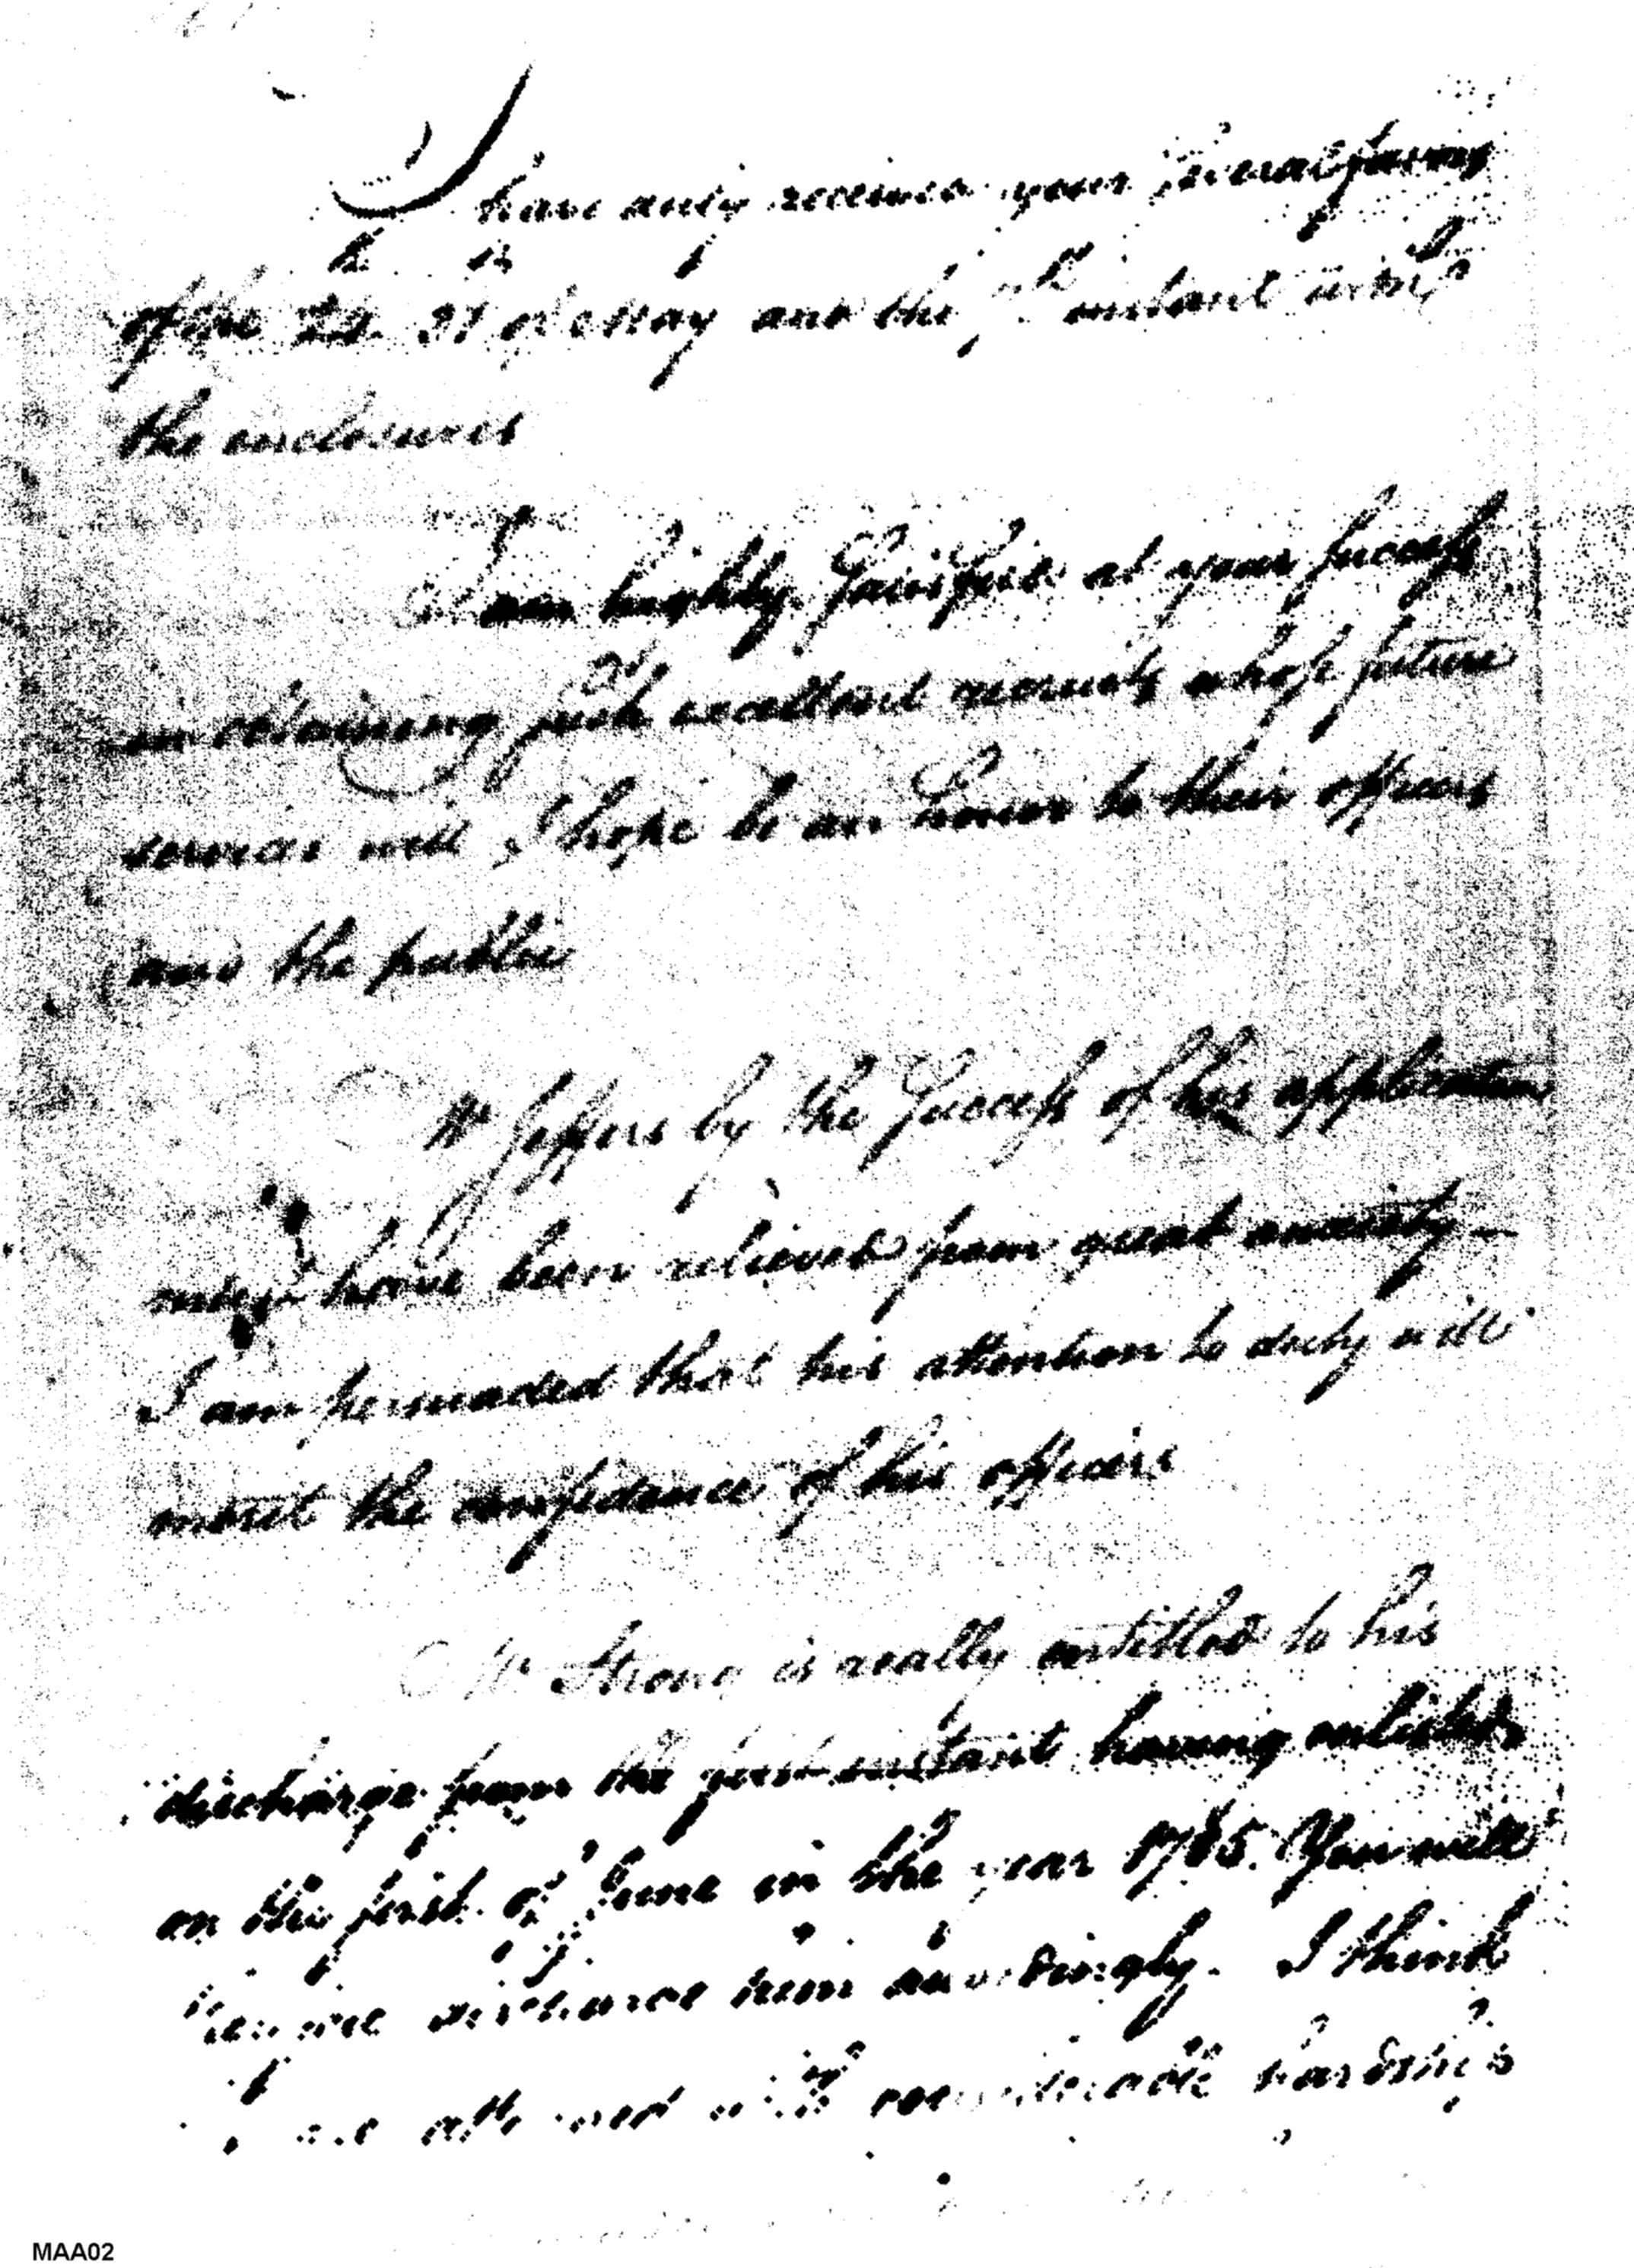 I have duly received your several favors
of the 24th 31st of May and the 7th instant with
the enclosures
I am highly Satisfied at your Success
in obtaining such excellent recruits whose future
services will I hope be an honor to their officers
and the public
Mr Jeffers by the Success of his application
must have been relieved from great anxiety —
I am persuaded that his attention to duty will
merit the confidence of his officers
Mr Strong is really entitled to his
discharge from the first instant having enlisted
on the first of June in the year 1785. You will
discharge him accordingly. I think
attended with considerable hardships
MAA02